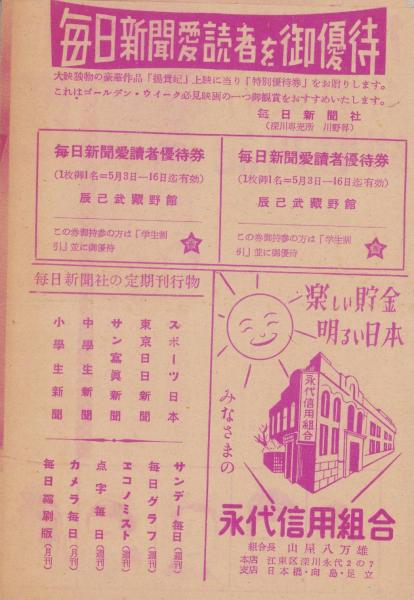 毎日新聞愛読者を御優待
大映独物の豪華作品『楊貴妃』上映に当り『特別優待券』をお贈りします。
これはゴールデン・ウイーク必見映画の一つ御観賞をおすすめいたします。
毎日新聞社
(深川専売所 川野昇)
毎日新聞愛讀者優待券
(1枚御1名=5月3日―16日迄有効)
辰己武藏野館
この券御持参の方は「学生割
引」並に御優待
毎日新聞愛讀者優待券
(1枚御1名=5月3日―16日迄有効)
辰己武藏野館
この券御持参の方は「学生割
引」並に御優待
毎日新聞社の定期刊行物
スポーツ日本
東京日日新聞
サン寫眞新聞
中學生新聞
小學生新聞
サンデー毎日(週刊)
毎日グラフ(週刊)
エコノミスト(週刊)
点字毎日(週刊)
カメラ毎日(月刊)
毎日縮刷版(月刊)
楽しい貯金
明るい日本
みなさまの
永代信用組合
永代信用組合
組合長 山屋八万雄
本店 江東区深川永代2の7
支店 日本橋・向島・足立